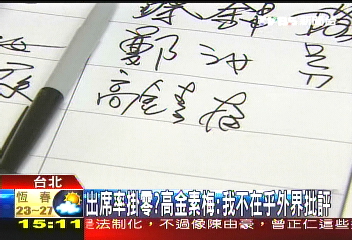 鄭
高金素梅
台北
恆春
23-27
出席率掛零?高金素梅:我不在乎外界批評
15:11
是法制化，不過像陳由豪，曾正仁這些